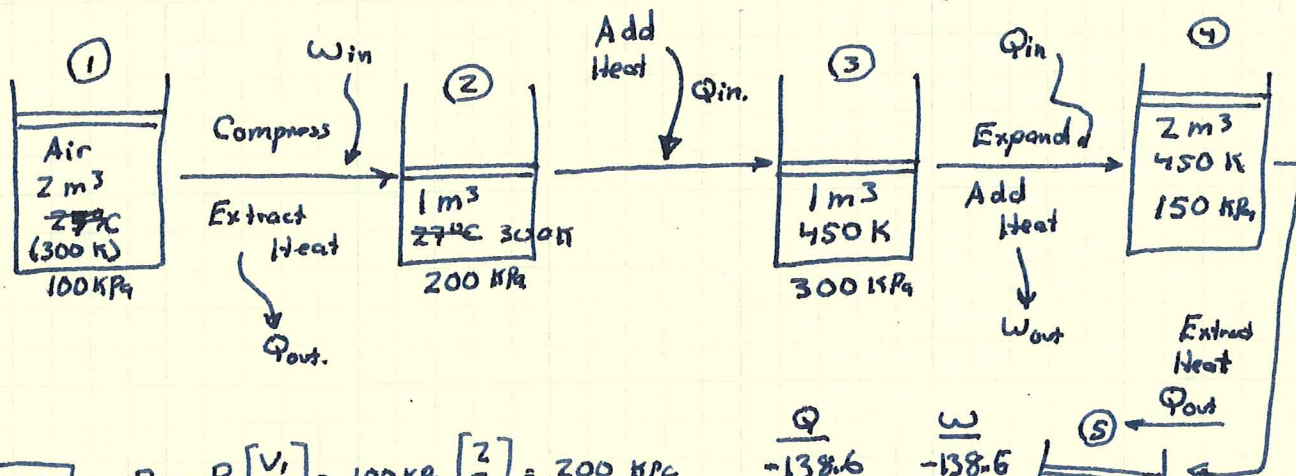 ①
Air
2 m³
27°C
(300 K)
100 KPa
Win
Compress
Extract
Heat
Qout.
②
1 m³
27°C 300K
200 KPa
Add
Heat
Qin.
③
1 m³
450 K
300 KPa
Qin
Expand
Add
Heat
Wout
④
2 m³
450 K
150 KPa
Extract
Heat
Qout
⑤
Q W
-138.6 -138.6
P [V₁ = 100 KPa [2 = 200 KPa